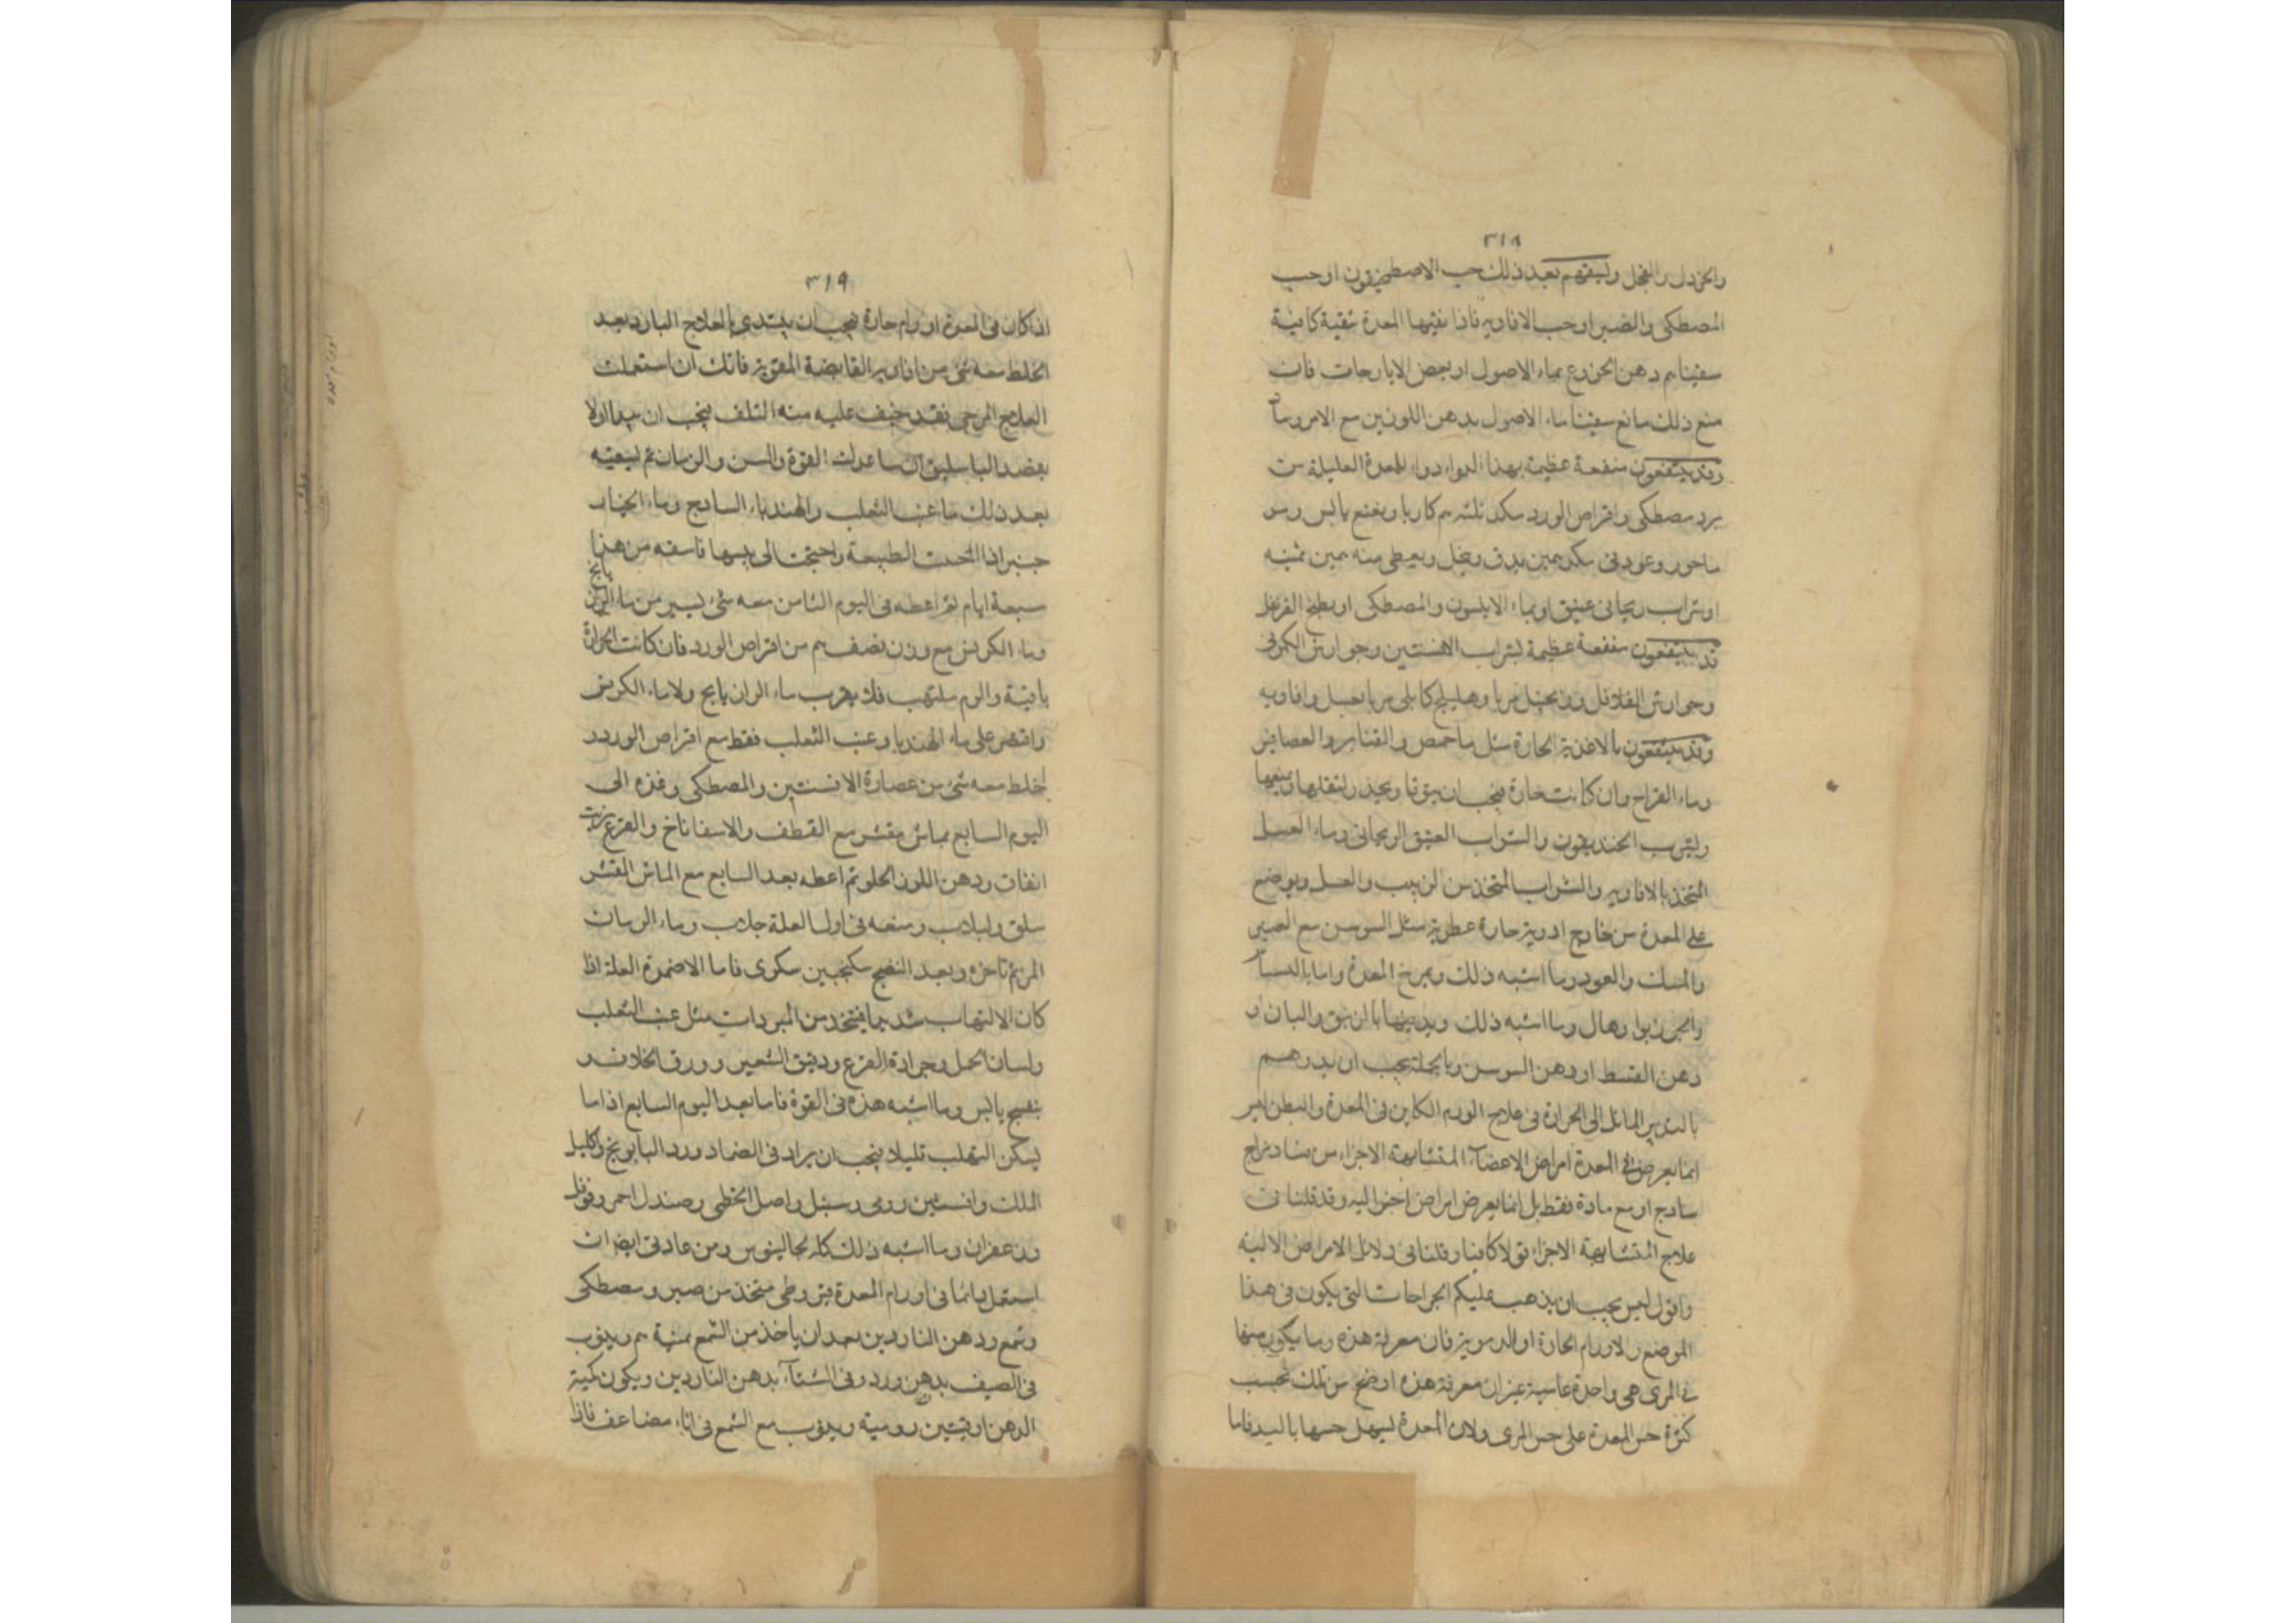 ٣١٨
والخردل والفجل وليسقهم بعد ذلك حب الاصطمخيقون او حب
المصطكى والصبر او حب الافاويه فاذا نقيتها المعدة تنقية كافية
سقيناهم دهن الخروع بماء الاصول او بعض الايارجات فان
منع ذلك مانع سقينا ماء الاصول بدهن اللوزين مع الامروسا
وقد ينتفعون منفعة عظيمة بهذا الدواء دواء للمعدة العليلة من
برد مصطكى واقراص الورد سك ثلثه كاربا ونعنع يابس
وعود نى سك يدق وينخل ويعطى منه
او شراب ريحانى عتيق او بماء الانيسون والمصطكى او بطبخ القرنفل
قد ينتفعون منفعة عظيمة بشراب الافسنتين وجوارش الكمونى
وجوارش الفلافل وزنجبيل مربا وهليلج كابلى مربا بعسل وافاويه
وقد ينتفعون بالاغذية الحارة مثل ماء حمص والقنابر والعصافير
وماء القراح وان كانت حارة فيجب ان يتوقا ويحذر لثقلها
وليشرب الخنديقون والشراب العتيق الريحانى وماء العسل
المتخذ بالافاويه والشراب المتخذ من الزبيب والعسل ويوضع
على المعدة من خارج ادوية حارة عطرية مثل السوسن مع العنبر
والمسك والعود وما اشبه ذلك ويمرخ المعدة
والجوزبوا وهال وما اشبه ذلك ويدهنها بالزنبق والبان او
دهن القسط او دهن السوسن وبالجملة يجب ان يدبرهم
بالتدبير المائل الى الحرارة فى علاج الورم الكاين فى المعدة والبطن ليس
انما يعرض فى المعدة امراض الاعضاء المتشابهة الاجزاء من فساد مزاج
ساذج او مع مادة فقط بل انما يعرض امراض اخر الية وقد قلنا فى
علاج المتشابهة الاجزاء قولا كافيا وقلنا فى دلائل الامراض الالية
واقول ليس يجب ان يذهب عليكم الجراحات التى يكون فى هذا
الموضع والاورام الحارة او الدموية فان معرفة هذه وما يكون منها
فى المرى هى واحدة غير ان معرفة هذه اوضح من تلك بحسب
كثرة حس المعدة على حس المرى ولان المعدة ليسهل حسها باليد فاما
٣١٩
اذا كان فى المعدة اورام حارة فيجب ان يبتدى بالعلاج البارد بعد
الخلط معه شئ من افاويه القابضة المقوية فانك ان استعملت
العلاج المرخى فقد خيف عليه منه التلف فيجب ان يبدا اولا
بفصد الباسليق ان ساعدت القوة والسن والزمان ثم ليسقيه
بعد ذلك ماء عنب الثعلب والهندباء الساذج وماء الخيار
جنبر اذا الحت الطبيعة واحتجت الى يبسها فاسقه من هذا
سبعة ايام ثم اعطه فى اليوم الثامن معه شئ يسير من ماء الرازيانج
وماء الكرفس مع وزن نصف من اقراص الورد فان كانت الحرارة
باقية والورم ملتهب فلا يقرب ماء الرازيانج ولا ماء الكرفس
واقتصر على ماء الهندبا وعنب الثعلب فقط مع اقراص الورد و
اخلط معه شئ من عصارة الافسنتين والمصطكى وغذه الى
اليوم السابع بماش مقشر مع القطف والاسفاناخ والقرع بزيت
انفاق ودهن اللوز الحلو ثم اعطه بعد السابع مع الماش المقشر
سلق ولبلاب وسقه فى اول العلة جلاب وماء الرمان
المز ثم تاخره وبعد النضج سكنجبين سكرى فاما الاضمدة العلة اذا
كان الالتهاب شديدا فيتخذ من المبردات مثل عنب الثعلب
ولسان الحمل وجرادة القرع ودقيق الشعير وورق الخلاف و
بنفسج يابس وما اشبه هذه فى القوة فاما بعد اليوم السابع اذا ما
يسكن التهلب قليلا فيجب ان يزاد فى الضماد ورد البابونج واكليل
الملك وافسنتين رومى وسنبل واصل الخطمى وصندل احمر وفوفل
وزعفران وما اشبه ذلك كله لجالينوس ومن عادتى ايضا ان
استعمل دائما فى اورام المعدة قيروطى متخذ من صبر ومصطكى
وشمع ودهن الناردين بعد ان ياخذ من الشمع ثمنية ويذوب
فى الصيف بدهن ورد وفى الشتاء بدهن الناردين ويكون كمية
الدهن اوقيتين رومية ويذوب مع الشمع فى اناء مضاعف فاذا